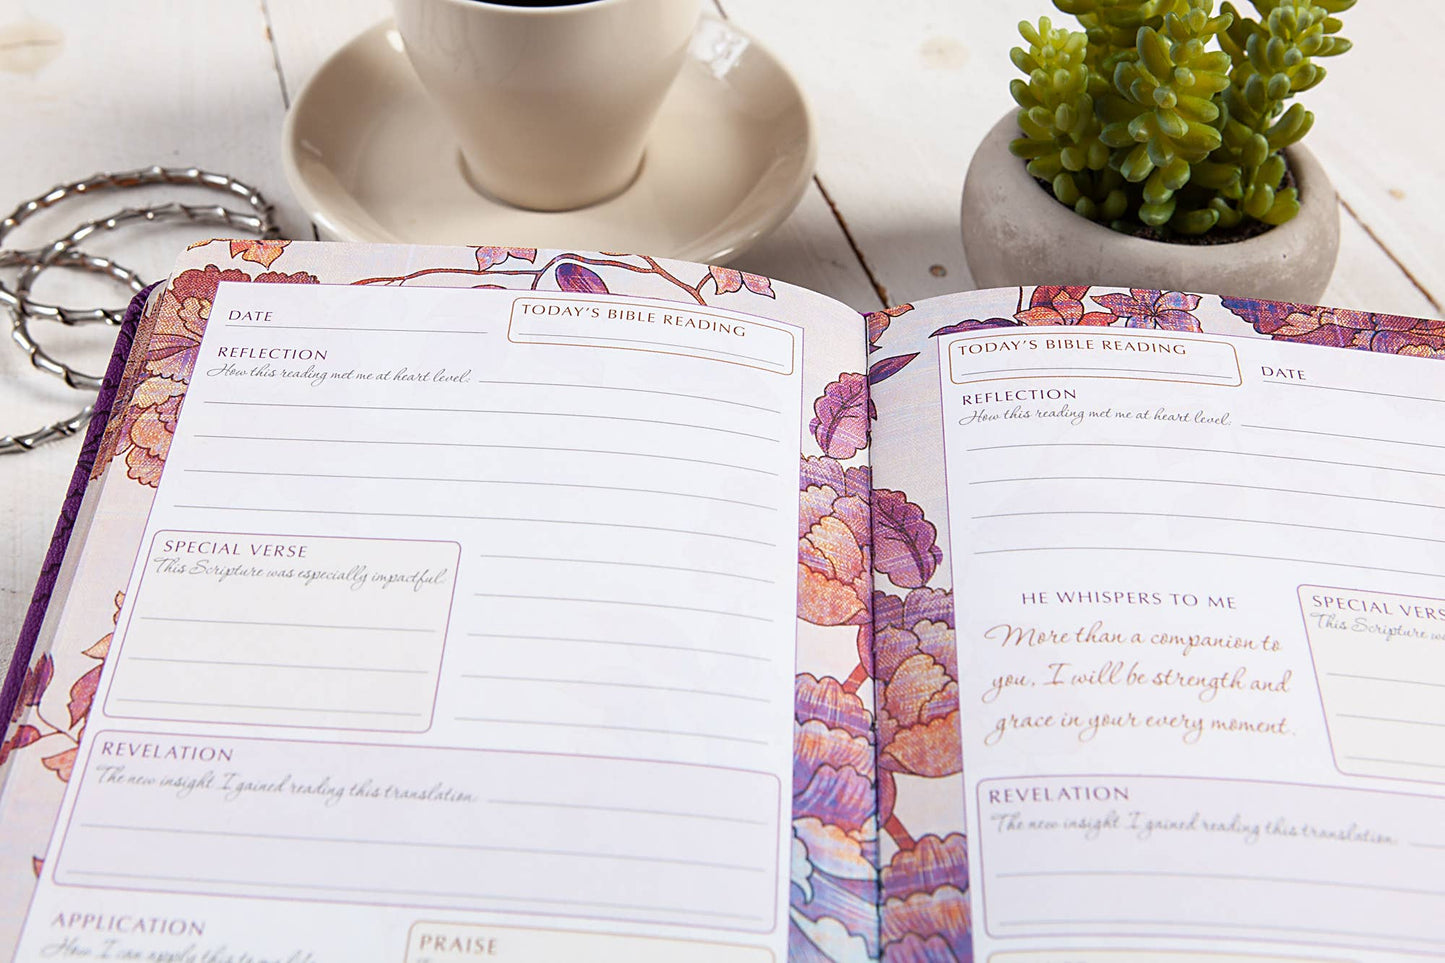 DATE
TODAY'S BIBLE READING
REFLECTION
How this reading met me at heart level:
SPECIAL VERSE
This Scripture was especially impactful:
REVELATION
The new insight I gained reading this translation:
APPLICATION
How I can apply this to my life:
PRAISE
TODAY'S BIBLE READING
DATE
REFLECTION
How this reading met me at heart level:
HE WHISPERS TO ME
More than a companion to
you, I will be strength and
grace in your every moment.
SPECIAL VERS
This Scripture w
REVELATION
The new insight I gained reading this translation: